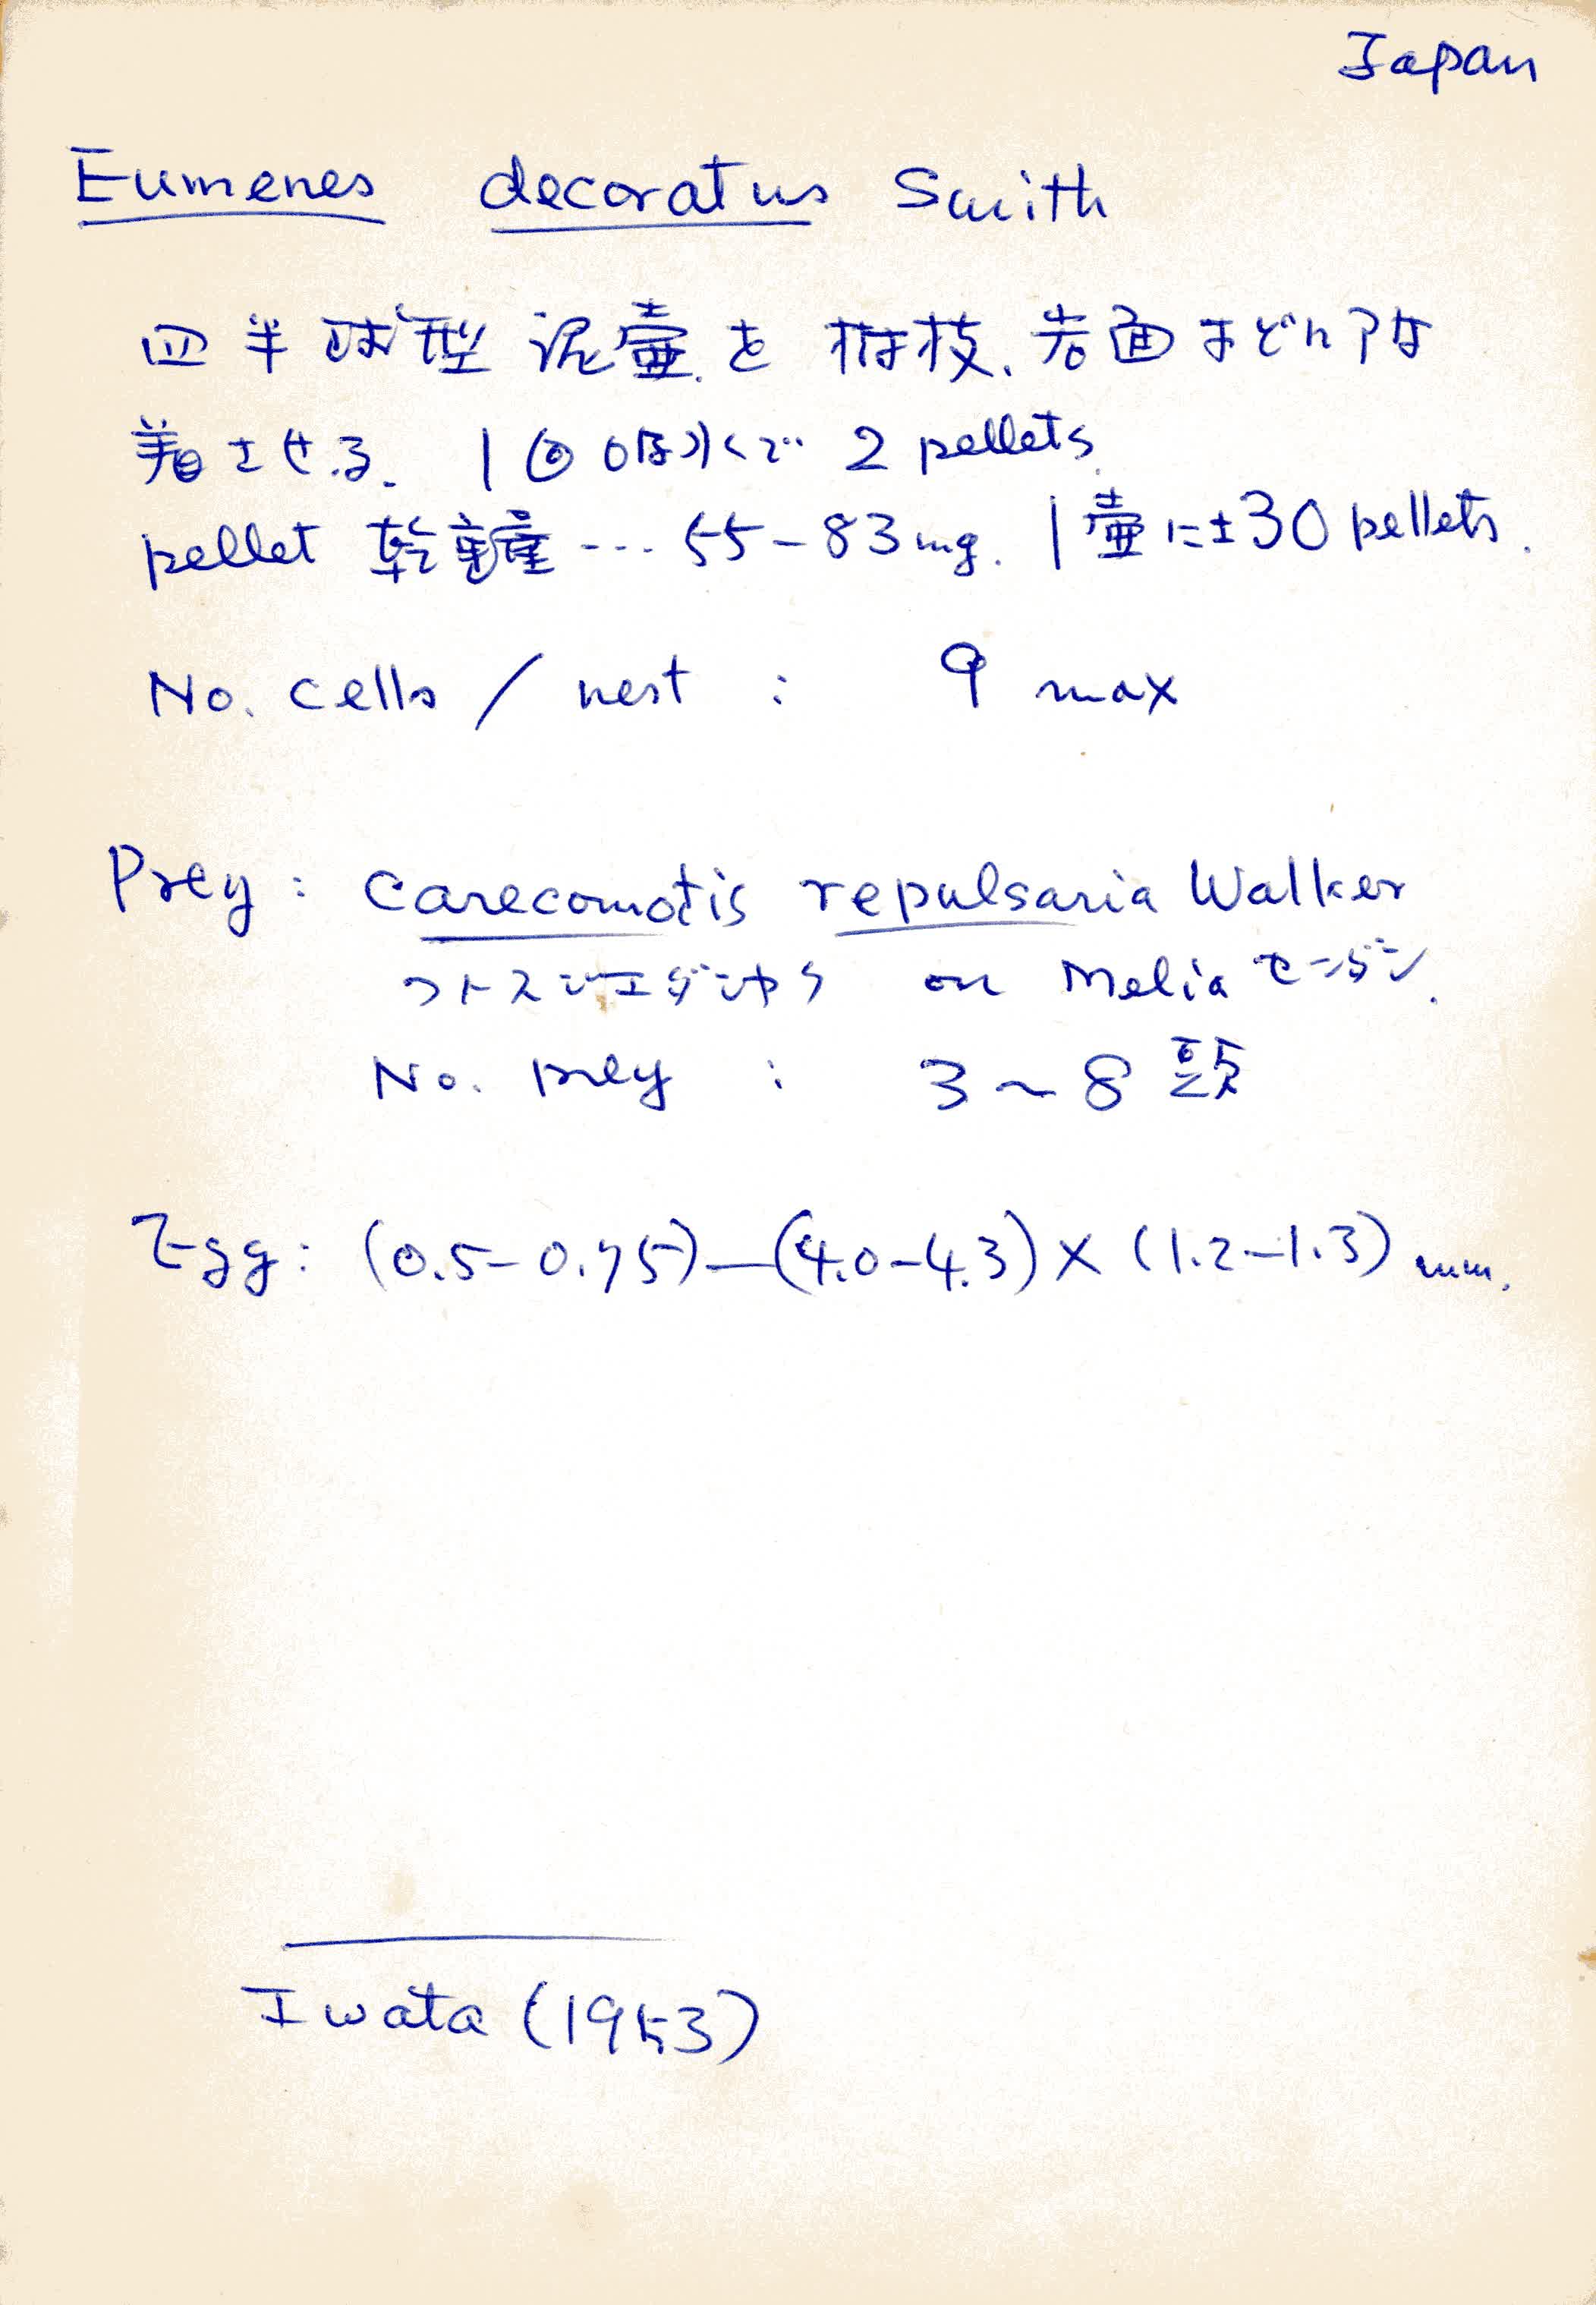 Japan
Eumenes decoratus Smith
皿半球型泥壷を樹枝、岩面などに付
着させる. 1回の吸水で 2 pellets.
pellet 乾重量 --- 55-83mg. 1壷に±30 pellets.
No. cells / nest : 9 max
Prey : Carecomotis repulsaria Walker
フトスジエダシャク on Melia センダン.
No. prey : 3~8頭
Egg : (0.5-0.75)—(4.0-4.3) × (1.2-1.3) mm.
Iwata (1953)